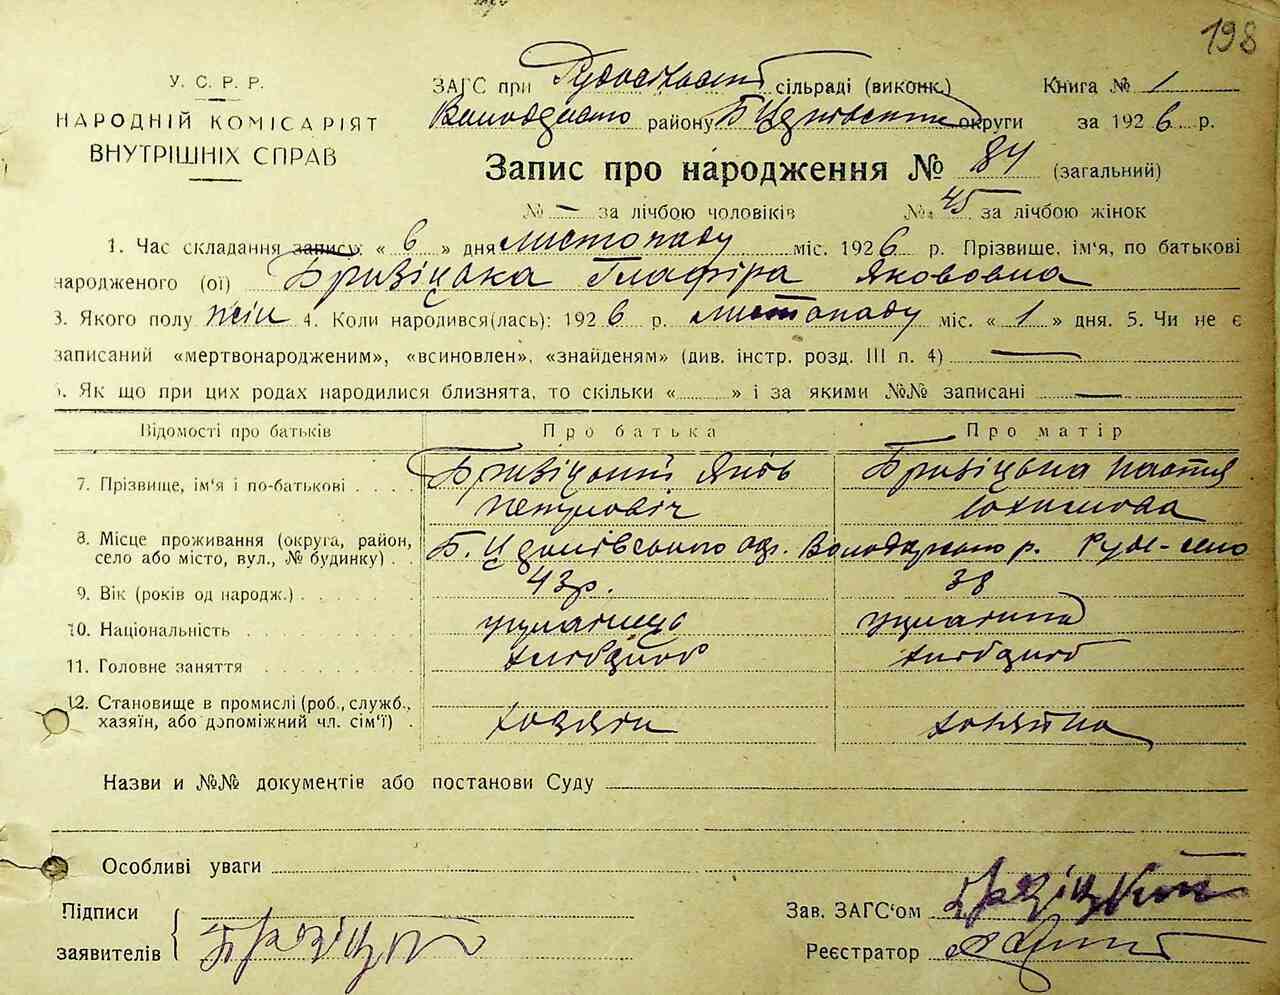 198
У. С. Р. Р.
НАРОДНІЙ КОМІСАРІЯТ
ВНУТРІШНІХ СПРАВ
ЗАГС при сільраді (виконк.) Книга № 1
району Б Церківської округи за 1926 р.
Запис про народження № 84 (загальний)
№ — за лічбою чоловіків № 45 за лічбою жінок
1. Час складання запису: « 6 » дня листопаду міс. 1926 р. Прізвище, ім'я, по батькові
народженого (ої) Бризіцька Глафіра Якововна
3. Якого полу жін 4. Коли народився(лась): 1926 р. листопаду міс. « 1 » дня. 5. Чи не є
записаний «мертвонародженим», «всиновлен», «знайденям» (див. інстр. розд. III п. 4) —
6. Як що при цих родах народилися близнята, то скільки « » і за якими №№ записані —
Відомості про батьків Про батька Про матір
7. Прізвище, ім'я і по-батькові Бризіцький Яків Петрович Бризіцька Настя
8. Місце проживання (округа, район, село або місто, вул., № будинку) Б. Церківського окр. Володарського р. Руде-село
9. Вік (років од народж.) 43р. 38
10. Національність українець українка
11. Головне заняття хлібороб хлібороб
12. Становище в промислі (роб., служб., хазяїн, або допоміжний чл. сім'ї) хозяїн хозяйка
Назви и №№ документів або постанови Суду
Особливі уваги
Підписи
заявителів
Зав. ЗАГС'ом
Реєстратор